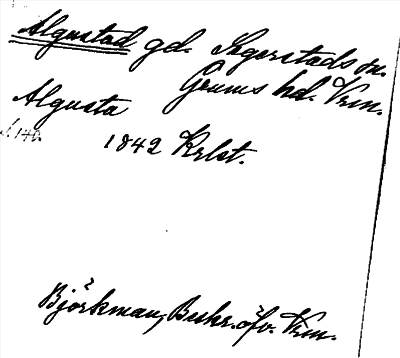 Algustad gd. Segerstads sn.
Grums hd. Vrm.
Algusta
1842 Krlst.
Björkman, Beskr. öfv. Vrm.